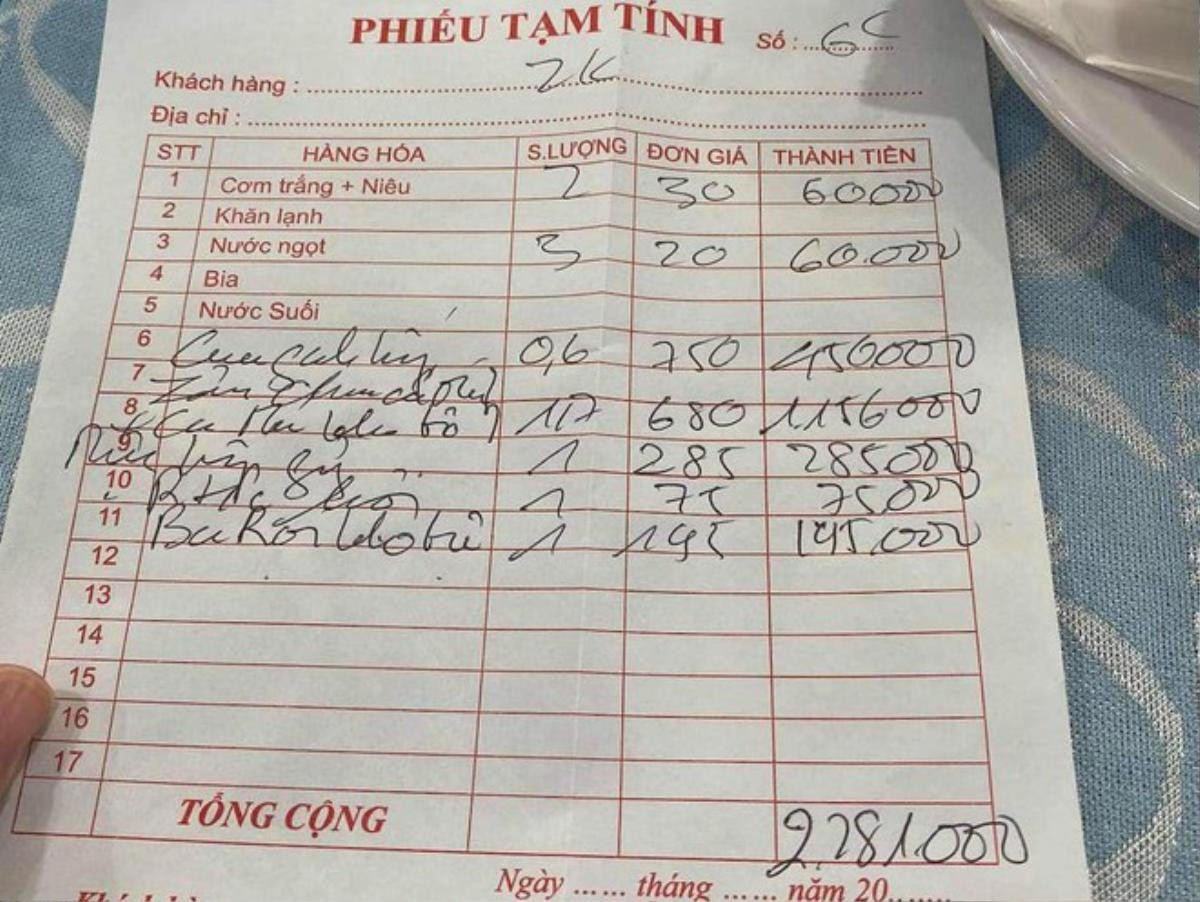 PHIẾU TẠM TÍNH Số : 6C
Khách hàng : 2K
Địa chỉ :
STT HÀNG HÓA S.LƯỢNG ĐƠN GIÁ THÀNH TIỀN
1 Cơm trắng + Niêu 2 30 60000
2 Khăn lạnh
3 Nước ngọt 3 20 60.000
4 Bia
5 Nước Suối
6 0,6 750 450000
7
8 1,7 680 1156000
9 1 285 285000
10 1 75 75000
11 Ba Rọi kho tộ 1 195 195.000
12
13
14
15
16
17
TỔNG CỘNG 2.281.000
Ngày ...... tháng ...... năm 20......